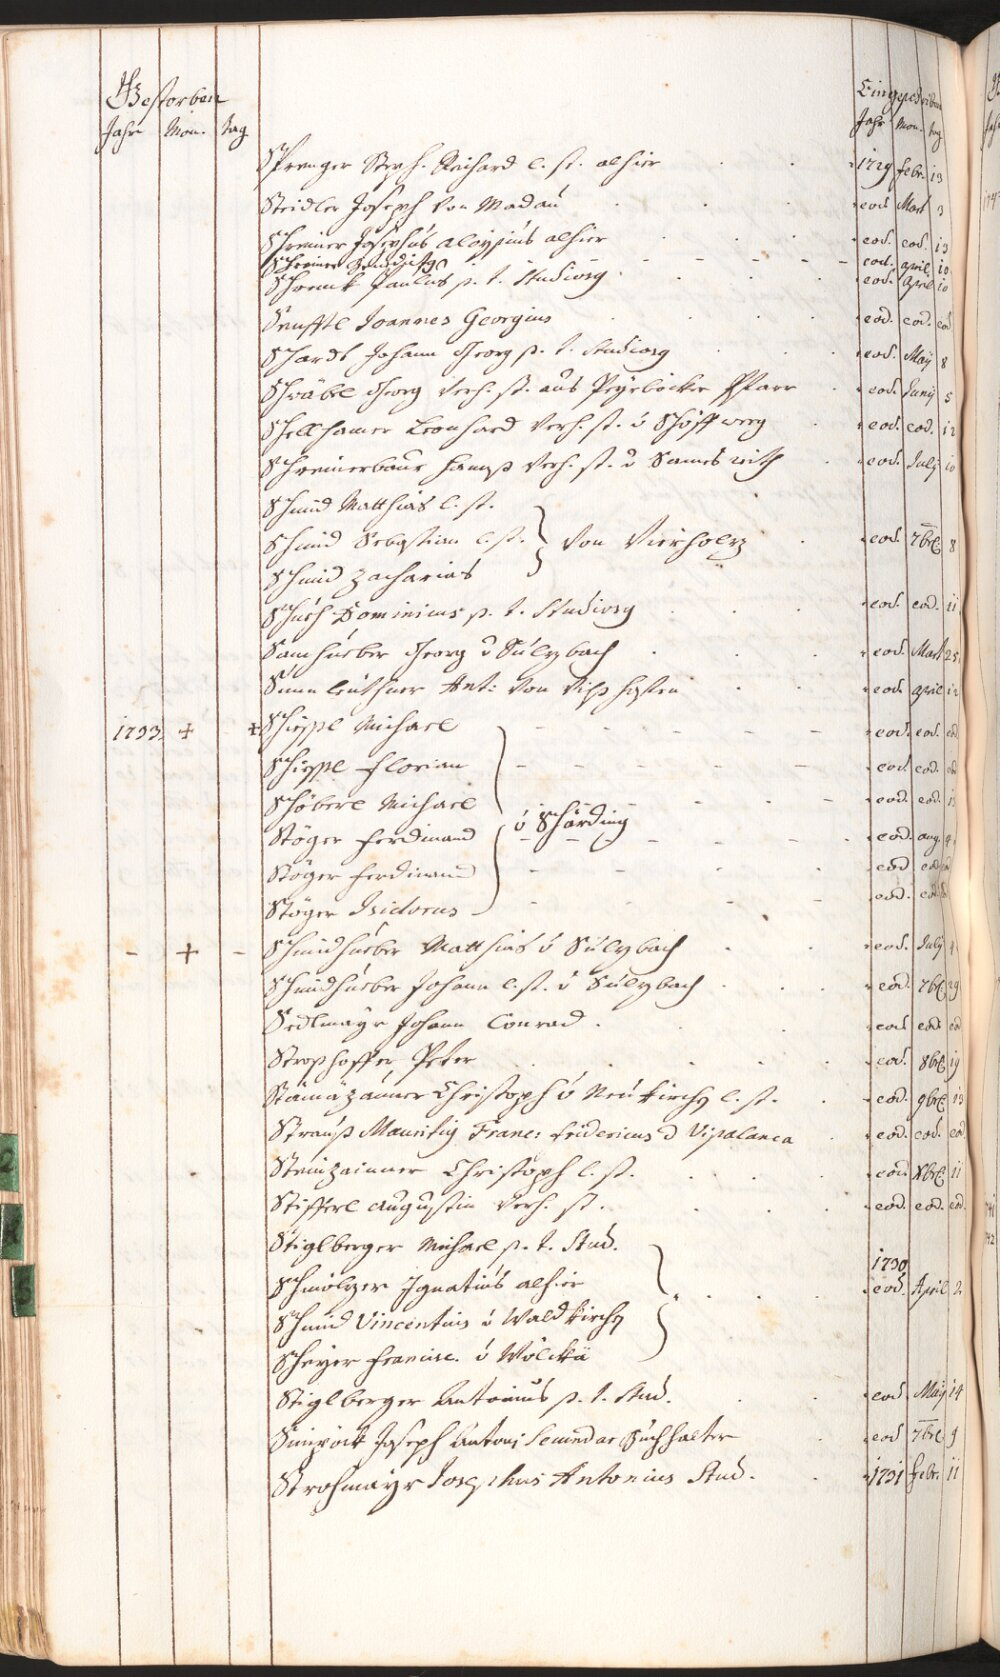 Gestorben Eingeschriben
Jahr Mon. tag Jahr Mon. tag
Sprenger Steph. Reichard l. st. alhier 1729 febr. 13
Steidler Joseph von Madau eod. Mart 3
Schreiner Josephus Aloysius alhier eod. eod. 13
Schreiner Benedictq eod. april 10
Schrenk Paulus p. t. Studiosq eod. april 10
Senfftl Joannes Georgius eod. eod. eod
Schardt Johann Georg p. t. Studiosq eod. Maÿ 8
Schwäbl Georg verh. st. aus Pfarr eod. Junij 5
Schellhamer Leonhard verh. st. v eod. eod. 12
Schreinerbaur verh. st. v eod. Julÿ 10
Schmid Matthias l. st.
Schmid Sebastian l. st. von Vierholz eod. 7br 8
Schmid Zacharias
Schuch Dominicus p. t. Studiosq eod. eod. 11
Samhueber Georg v Sulzbach eod. Mart 25
Sunnleuthner Ant: von eod. april 12
1733. + + Schießl Michael eod. eod. eod
Schießl Florian eod eod. eod
Schöberl Michael eod. eod. 13
Stöger Ferdinand v Schärding eod. aug. 4
Stöger Ferdinand eod eod eod
Stöger Isidorus eod. eod 8
- + - Schmidhueber Matthias v Sulzbach eod. Julÿ 4
Schmidhueber Johann l. st. v Sulzbach eod. 7br 29
Sedlmayr Johann Conrad. eod eod eod
Stroßhoffer Peter eod. 8br 19
Christoph v Neukirch l. st. eod. 9br 13
Strauß Mauritiq Franc: Fridericus d Vipalanca eod. eod. eod
Steinzainner Christoph l. st. eod. Xbr 11
Stifferl Augustin verh. st. eod. eod. eod.
Stiglberger Michael p. t. Stud. 1730
Schmölzer Ignatius alhier eod. April 2
Schmid Vincentius v Waldkirch
Scheyer Francisc. v
Stiglberger Antonius p. t. Stud. eod Maÿ 14
Joseph Antoni Buchhalter eod 7br 9
Strohmayr Josephus Antonius Stud. 1731 febr. 11